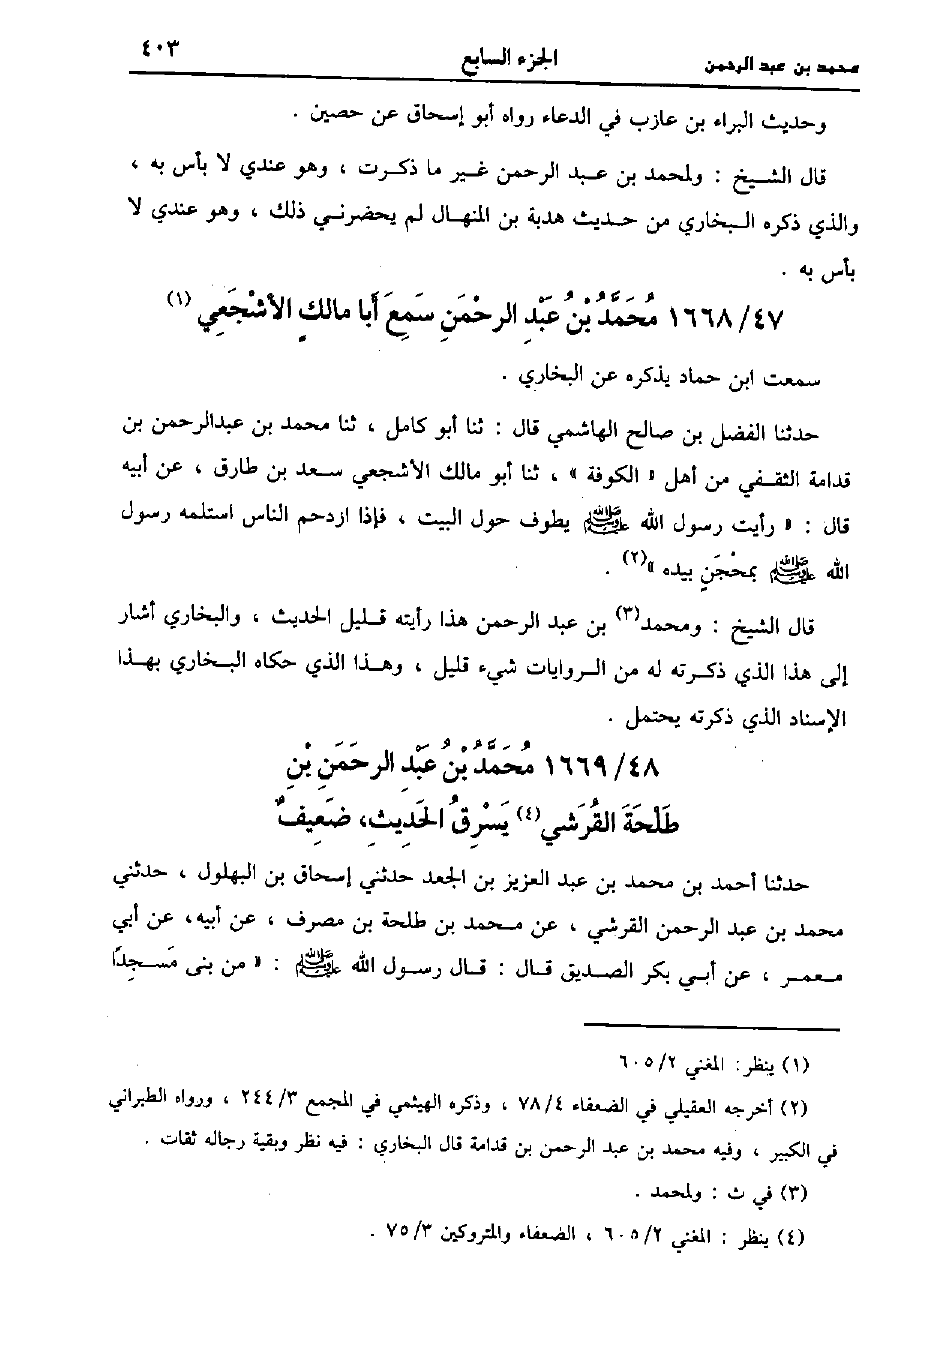 محمد بن عبد الرحمن الجزء السابع ٤٠٣
وحديث البراء بن عازب في الدعاء رواه أبو إسحاق عن حصين .
قال الشيخ : ولمحمد بن عبد الرحمن غير ما ذكرت ، وهو عندي لا بأس به ،
والذي ذكره البخاري من حديث هدبة بن المنهال لم يحضرني ذلك ، وهو عندي لا
بأس به .
١٦٦٨/٤٧ مُحَمَّدُ بْنُ عَبْدِ الرحْمَنِ سَمِعَ أَبا مالكٍ الأشْجَعِي (١)
سمعت ابن حماد يذكره عن البخاري .
حدثنا الفضل بن صالح الهاشمي قال : ثنا أبو كامل ، ثنا محمد بن عبدالرحمن بن
قدامة الثقفي من أهل « الكوفة » ، ثنا أبو مالك الأشجعي سعد بن طارق ، عن أبيه
قال : « رأيت رسول الله ﷺ يطوف حول البيت ، فإذا ازدحم الناس استلمه رسول
الله ﷺ بمحْجَنٍ بيده »(٢) .
قال الشيخ : ومحمد(٣) بن عبد الرحمن هذا رأيته قليل الحديث ، والبخاري أشار
إلى هذا الذي ذكرته له من الروايات شيء قليل ، وهذا الذي حكاه البخاري بهذا
الإسناد الذي ذكرته يحتمل .
١٦٦٩/٤٨ مُحَمَّدُ بْنُ عَبْدِ الرحَمَنِ بْنِ
طَلْحَةَ القُرَشي(٤) يَسْرِقُ الحَدِيثِ، ضَعِيفٌ
حدثنا أحمد بن محمد بن عبد العزيز بن الجعد حدثني إسحاق بن البهلول ، حدثني
محمد بن عبد الرحمن القرشي ، عن محمد بن طلحة بن مصرف ، عن أبيه، عن أبي
معمر ، عن أبي بكر الصديق قال : قال رسول الله ﷺ : « من بنى مَسجِدًا
(١) ينظر : المغني ٦٠٥/٢
(٢) أخرجه العقيلي في الضعفاء ٧٨/٤ ، وذكره الهيثمي في المجمع ٢٤٤/٣ ، ورواه الطبراني
في الكبير ، وفيه محمد بن عبد الرحمن بن قدامة قال البخاري : فيه نظر وبقية رجاله ثقات .
(٣) في ث : ولمحمد .
(٤) ينظر : المغني ٦٠٥/٢ ، الضعفاء والمتروكين ٧٥/٣ .